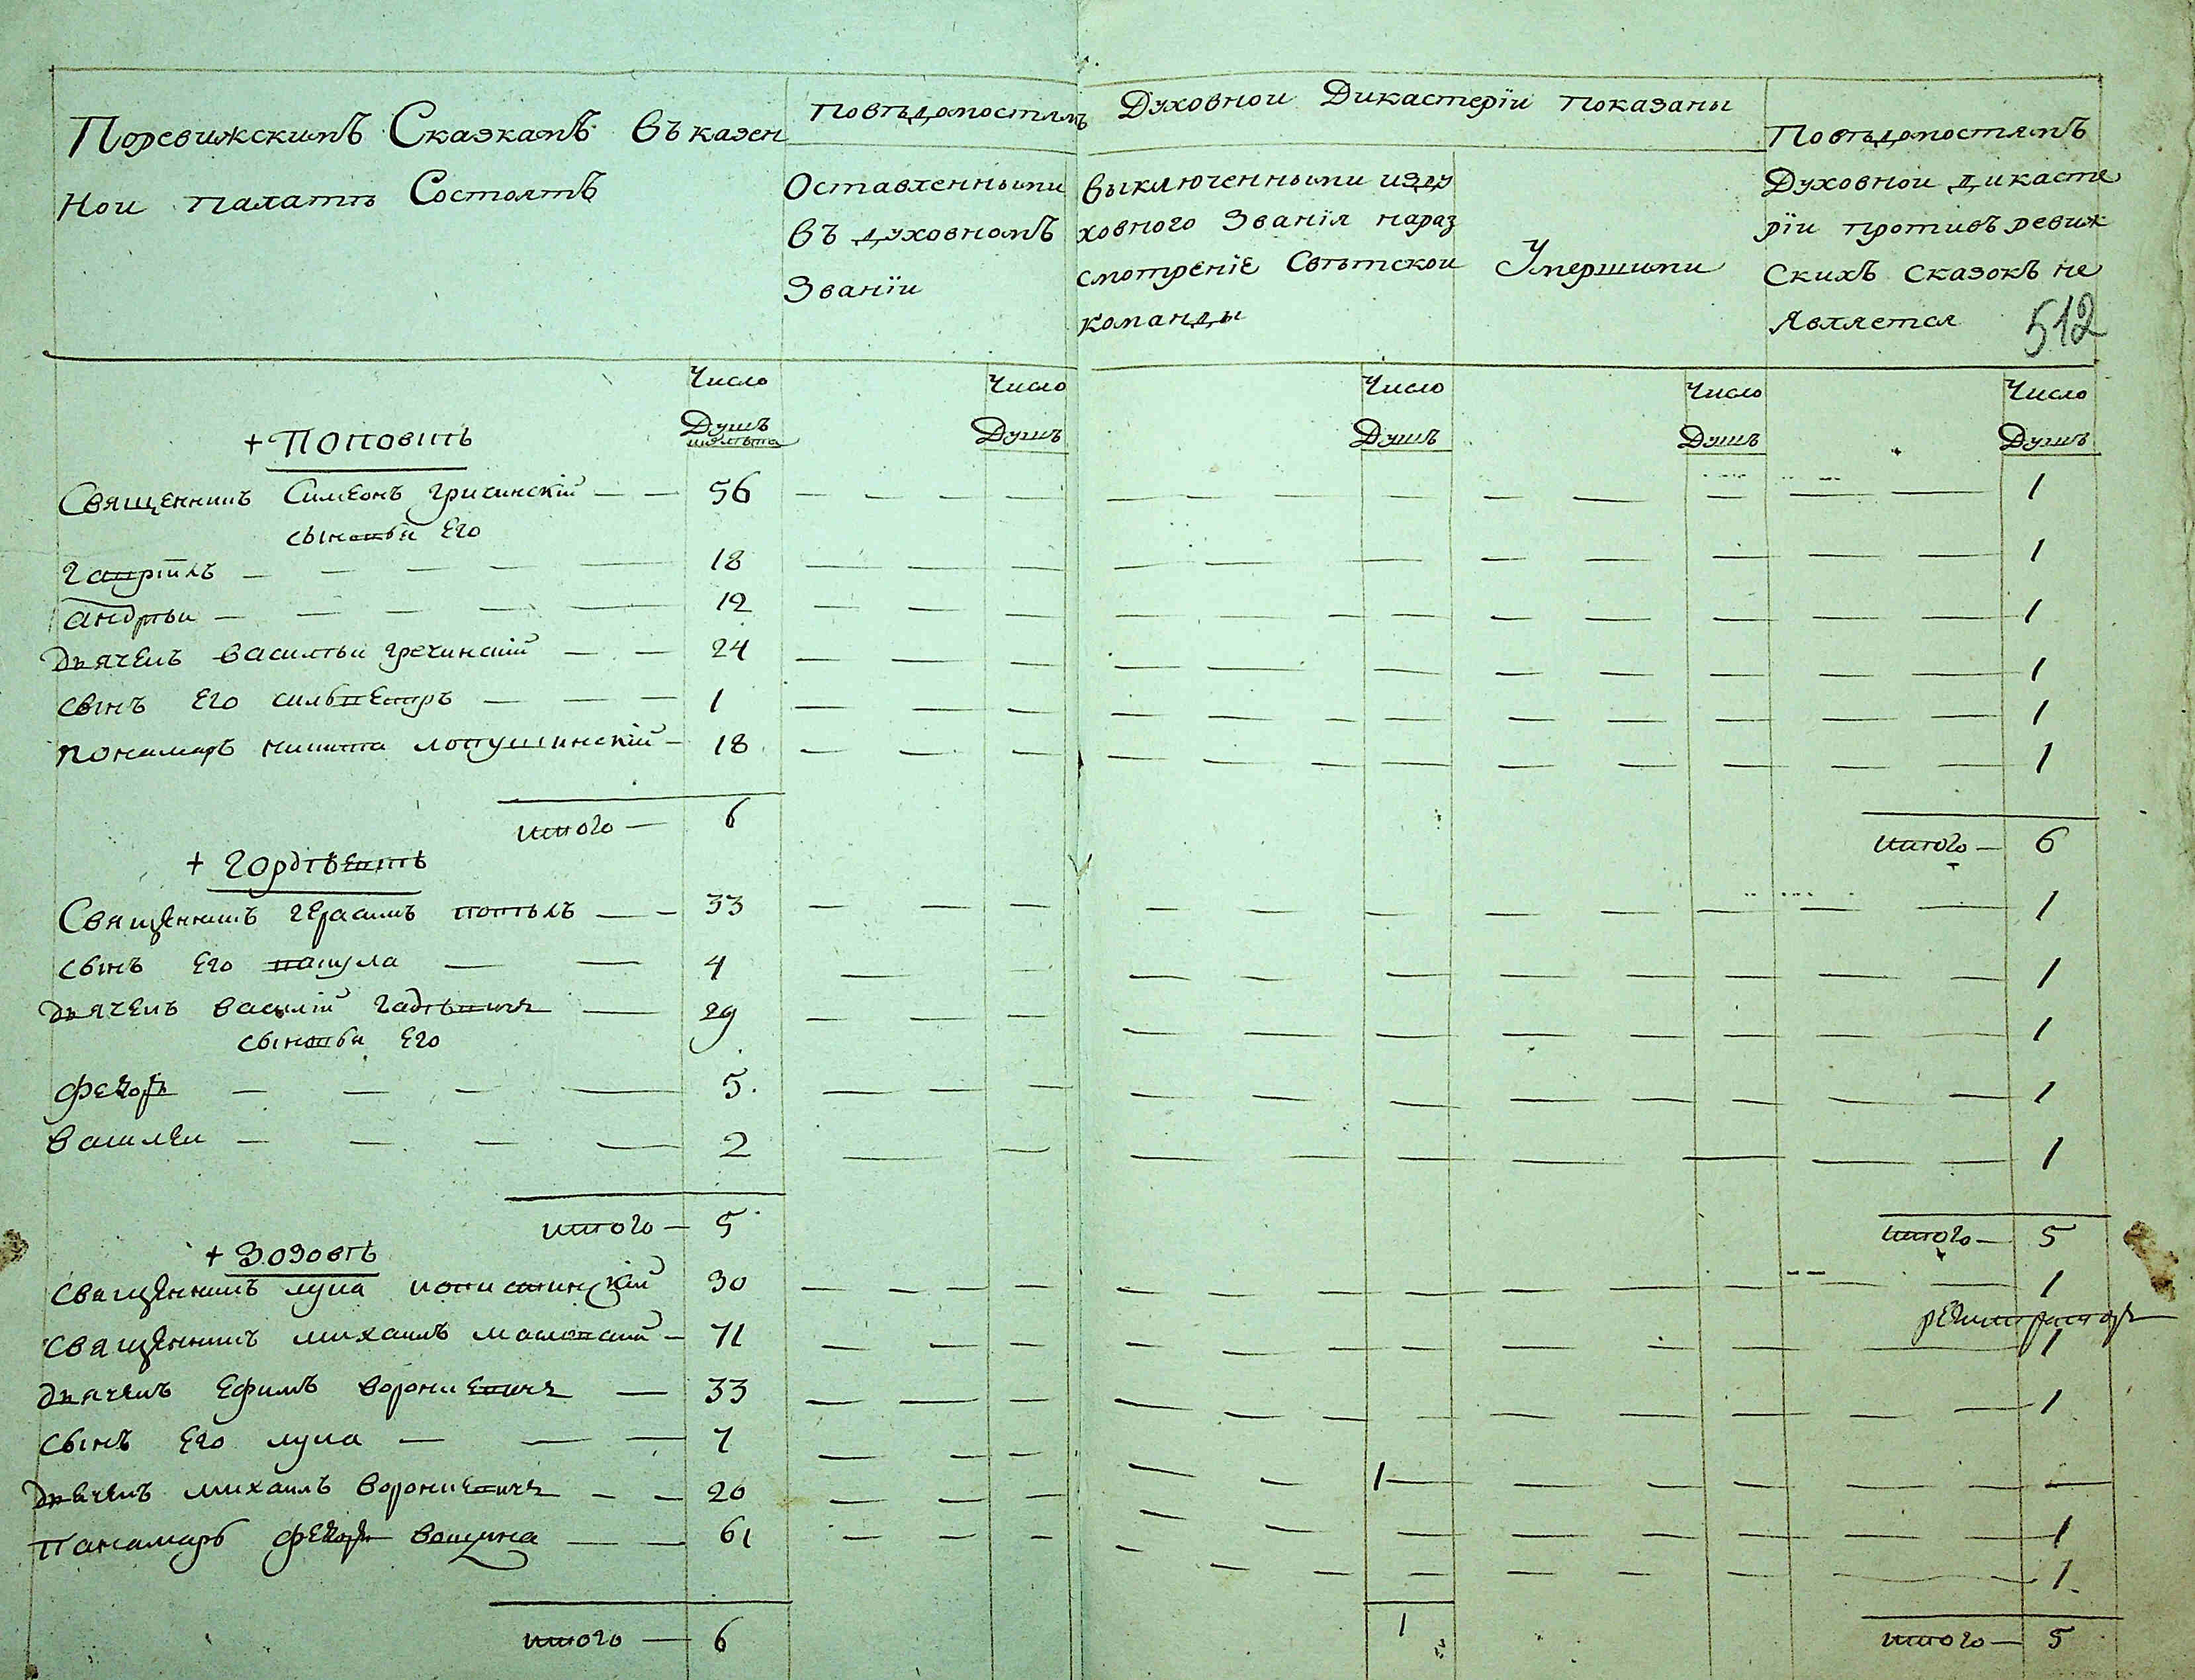 Поревижскимъ Сказкамъ въ казен
ной палатѣ Состоятъ
Повѣдомостямъ Духовнои Дикастерїи показаны
Оставленными
въ духовномъ
Званїи
выключенными изду
ховного Званїя нараз
смотренїе Свѣтскои
команды
Умершими
Повѣдомостямъ
Духовнои дикасте
рїи противъ ревиж
Скихъ Сказокъ не
Является
512
Число Число Число Число Число
Душъ Душъ Душъ Душъ Душъ
+ Поповкѣ
Священникъ Симеонъ гричинскїй — — 56 — — — — 1
сыновьи Его
гаврїилъ — 18 — — — 1
андрѣи — 12 — — — 1
дьячекъ василѣи гречинскїй — — 24 — — — 1
сынъ Его сильвестръ — — — 1 — — — 1
пономаръ никита лопушинскїй — 18 — — — 1
итого — 6 итого — 6
+ гордѣевкѣ
Священникъ герасимъ — — 33 — — — 1
сынъ Его вакула — — 4 — — — 1
дьячекъ василїй — 29 — — — 1
сыновьи Его
федоръ — — — — 5. — — — 1
василеи — — — — 2 — — 1
итого — 5 итого — 5
+ Зозовѣ
священникъ лука 30 — — — — 1
регистраторъ
священникъ михаилъ — 71 — — — 1
дьячекъ Ефимъ — 33 — — — 1
сынъ Его лука — — — 7 — — — 1 — —
дьячекъ михаилъ — — 20 — — — 1
панамаръ федоръ — — 61 — — — 1
итого — 6 1 итого — 5